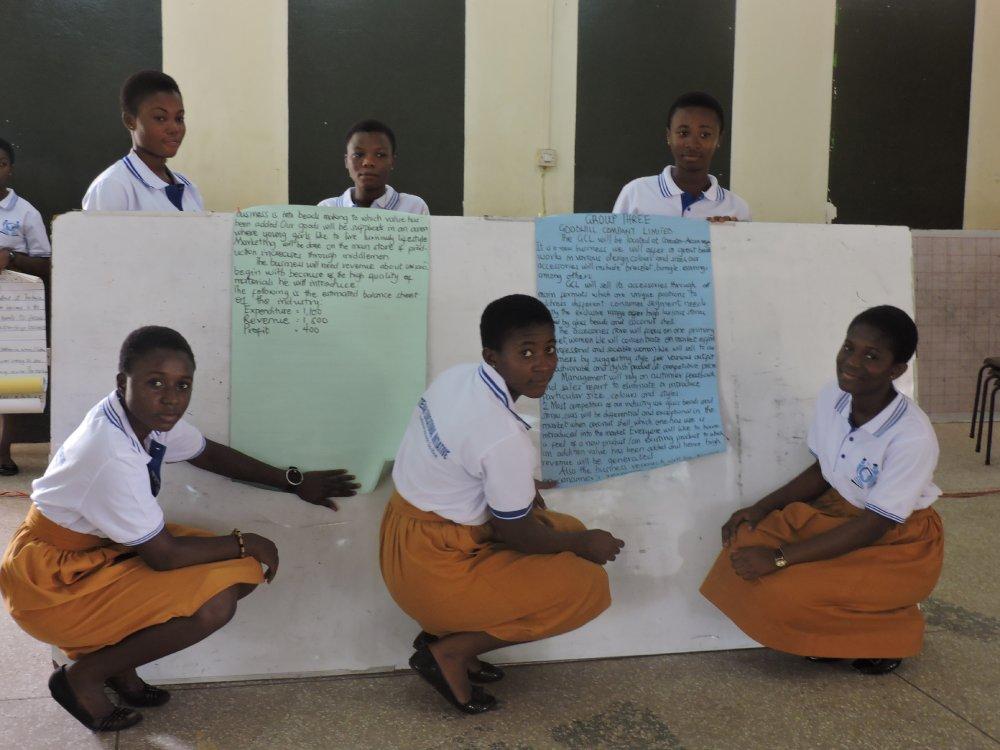 business is into beads making to which value has
been added Our goods will be supplied in an area
where young girls like to live luxuriously lifestyle
Marketing will be done on the main store of prod-
uction increases through middlemen
The business will need revenue about
begin with because of the high quality of
materials he will introduce
The following is the estimated balance sheet
of the industry
Expenditure = 1,100
Revenue = 1,500
Profit = 400
GROUP THREE
GOODWILL COMPANY LIMITED
The GCL will be located at
is a new business we will offer a great bead
works in various design, colours and sizes, our
accessories will include bracelet, bangle earrings
among others
GCL will sell its accessories through
main formats which are unique positions to
address different consumer segment needs
the exclusive range offer high
by glass beads and coconut shell
The accessories store will focus on one primary
women We will concentrate on market
professional and sociable women We will sell to our
by suggesting style for various outfit
fashionable and stylish product at competitive prices
Management will rely on customer feedback
and sales report to eliminate or introduce
particular size, colours and styles
2 Most competitors of our industry use glass beads and
ours will be differential and exceptional in the
market when coconut shell which one has use is
introduced into the market Everyone will like to have
a feel of a new product / an existing product to which
an addition value has been added and hence high
revenue will be generated
Also the business